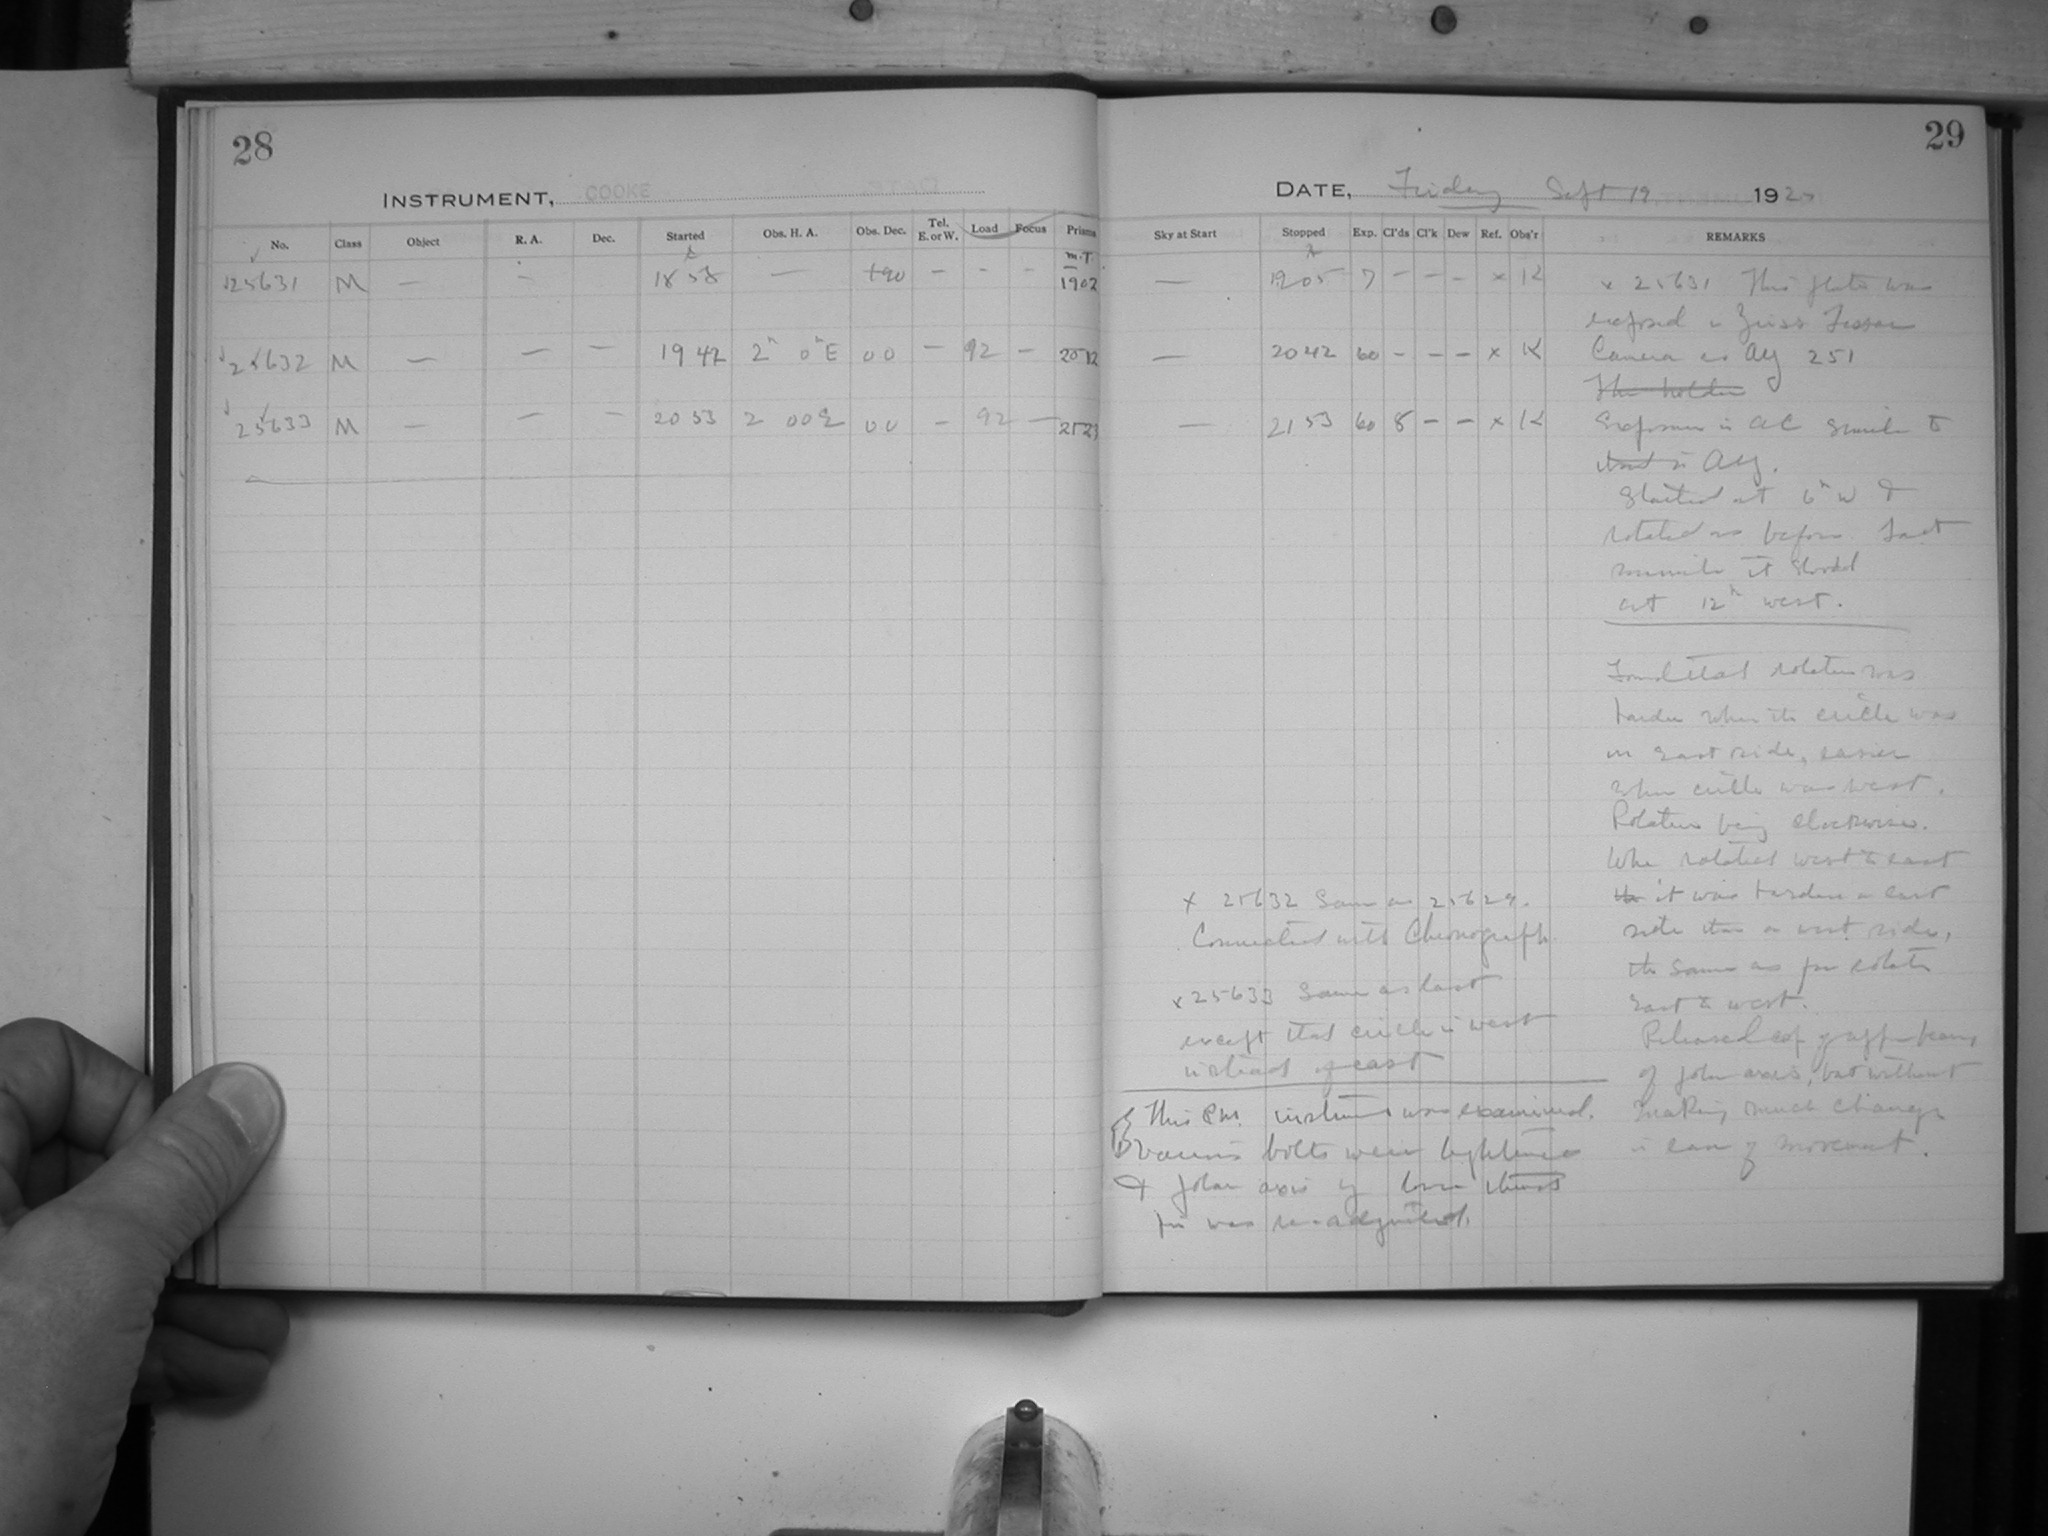 28
INSTRUMENT, COOKE
No. Class Object R. A. Dec. Started Obs. H. A. Obs. Dec. Tel. E. or W. Load Focus Prisms
m.T.
25631 M — — 18 58 — +90 — - - 1902
25632 M — — — 19 42 2h 0m E 00 — 92 — 2012
25633 M — — — 20 53 2 00 E 00 — 92 — 2123
29
DATE, Friday Sept 19 1920
Sky at Start Stopped Exp. Cl'ds Cl'k Dew Ref. Obs'r REMARKS
— 1905 7 – – – x K
— 2042 60 – – – x K
— 2153 60 8 – – x K
x 25631 This plate was
exposed in Zeiss Tessar
Camera as AY 251
The holder
Exposure in AC similar to
that in AY.
Started at 6h W &
rotated as before. Last
minute it stood
at 12h west.
Found that rotation was
harder when the circle was
on east side, easier
when circle was west.
Rotation being clockwise.
When rotated west to east
it was harder on east
side than on west side,
the same as for rotation
East to west.
Released
of polar axis, but without
making much change
in ease of movement.
x 25632 Same as 25629.
Connected with Chronograph.
x 25633 Same as last
except that circle is west
instead of east
This P.M. instrument was examined.
Various bolts were tightened
& polar axis
was re-adjusted.